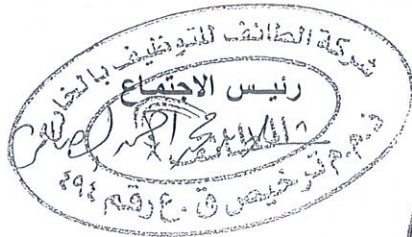 شركة الطائف للتوظيف بالخارج
رئيس الاجتماع
محمد احمد
ش.م.م ترخيص ق.ع رقم ٤٩٤